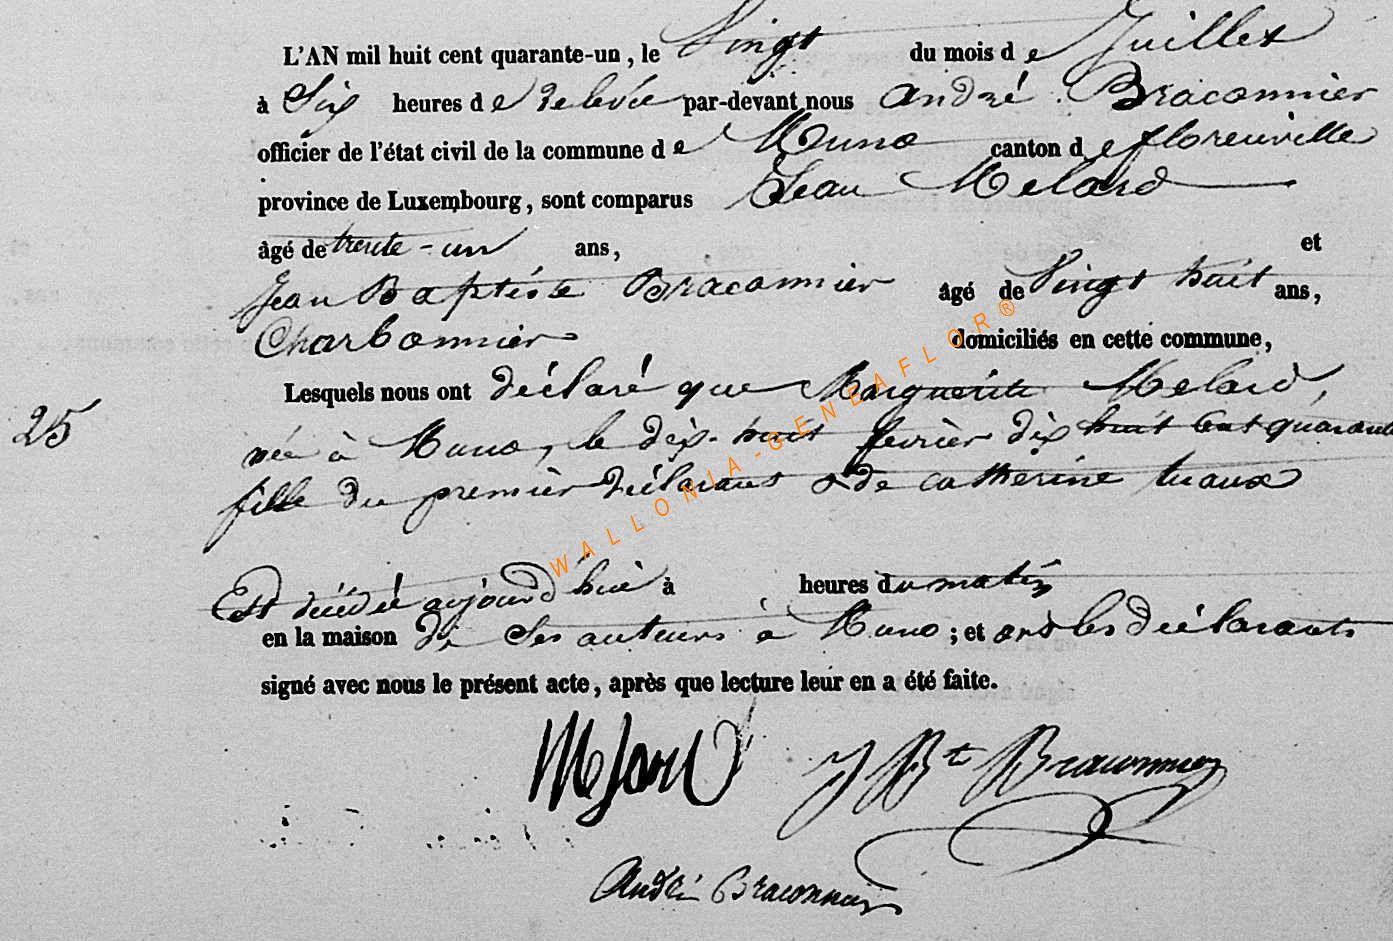 L'AN mil huit cent quarante-un, le Vingt du mois de Juillet
à Six heures de relevée par-devant nous André Braconnier
officier de l'état civil de la commune de Muno canton de florenville
province de Luxembourg, sont comparus Jean Melard
âgé de trente-un ans, et
Jean Baptiste Braconnier âgé de Vingt huit ans,
Charbonnier domiciliés en cette commune,
Lesquels nous ont déclaré que Marguerite Melard,
25
née à Muno, le dix-huit fevrier dix huit Cent quarante
fille du premier déclarant & de catherine
Est décédée aujourd'hui à heures du matin
en la maison de ses auteurs à Muno; et ont les déclarants
signé avec nous le présent acte, après que lecture leur en a été faite.
Melard J Bt Braconnier
André Braconnier
WALLONIA-GENEAFLOR®